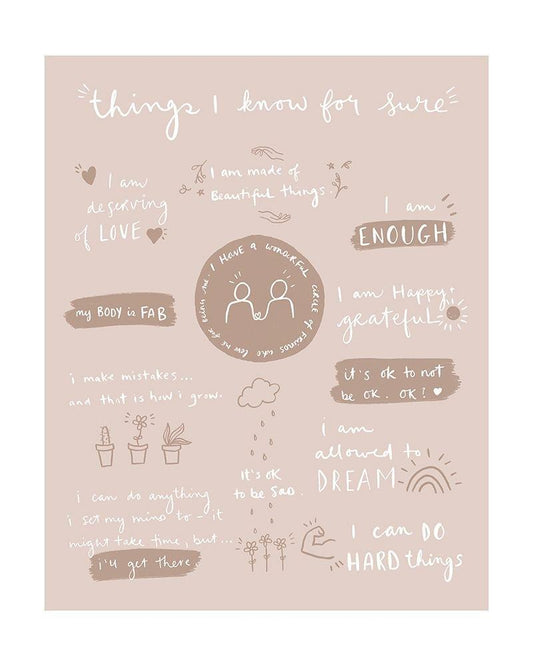 "things I know for sure"
I am
deserving
of LOVE
I am made of
Beautiful things.
I am
ENOUGH
my BODY is FAB
I HAVE A WONDERFUL CIRCLE OF FRIENDS who love me for being me.
I am Happy +
grateful
i make mistakes...
and that is how i grow.
it's ok to not
be ok. OK?
i am
allowed to
DREAM
It's OK
to be SAD.
i can do anything
i set my mind to - it
might take time, but...
i'll get there
I can DO
HARD things